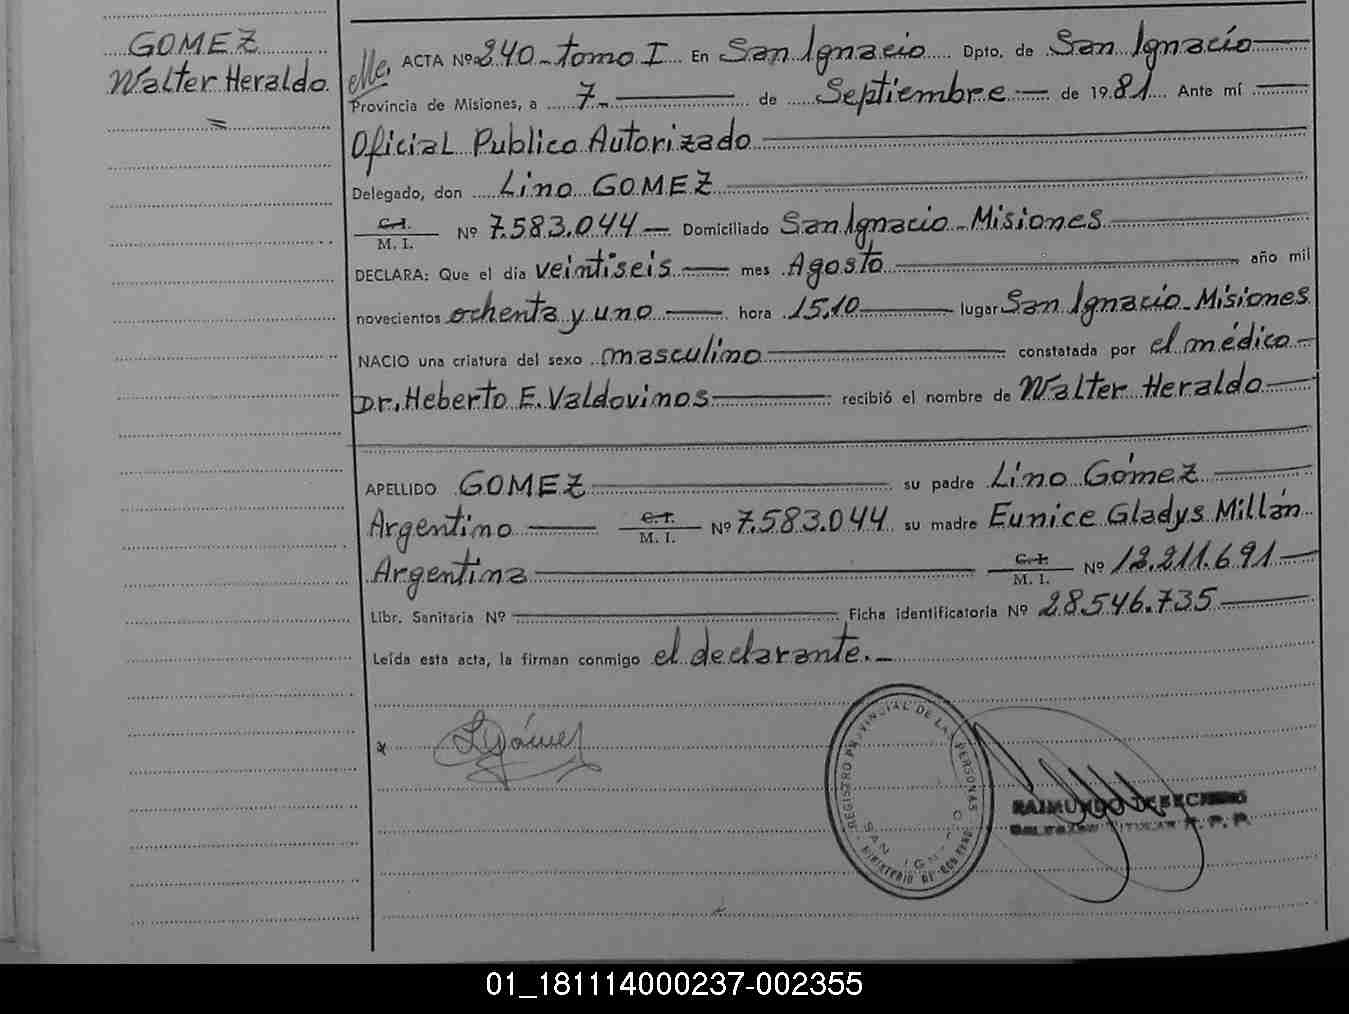 GOMEZ
Walter Heraldo.
ACTA Nº 240 - tomo I En San Ignacio Dpto. de San Ignacio
Provincia de Misiones, a 7- de Septiembre de 1981 Ante mí
Oficial Publico Autorizado
Delegado, don Lino GOMEZ
C.I.
M. I. Nº 7.583.044 Domiciliado San Ignacio - Misiones
DECLARA: Que el día veintiseis mes Agosto año mil
novecientos ochenta y uno hora 15,10 lugar San Ignacio - Misiones
NACIO una criatura del sexo masculino constatada por el médico
Dr. Heberto E. Valdovinos recibió el nombre de Walter Heraldo
APELLIDO GOMEZ su padre Lino Gómez
Argentino C.I. M. I. Nº 7.583.044 su madre Eunice Gladys Millán
Argentina C.I. M. I. Nº 12.211.691
Libr. Sanitaria Nº Ficha identificatoria Nº 28.546.735
Leída esta acta, la firman conmigo el declarante.-
REGISTRO PROVINCIAL DE LAS PERSONAS
SAN IGNACIO
MINISTERIO DE GOBIERNO
RAIMUNDO
01_181114000237-002355